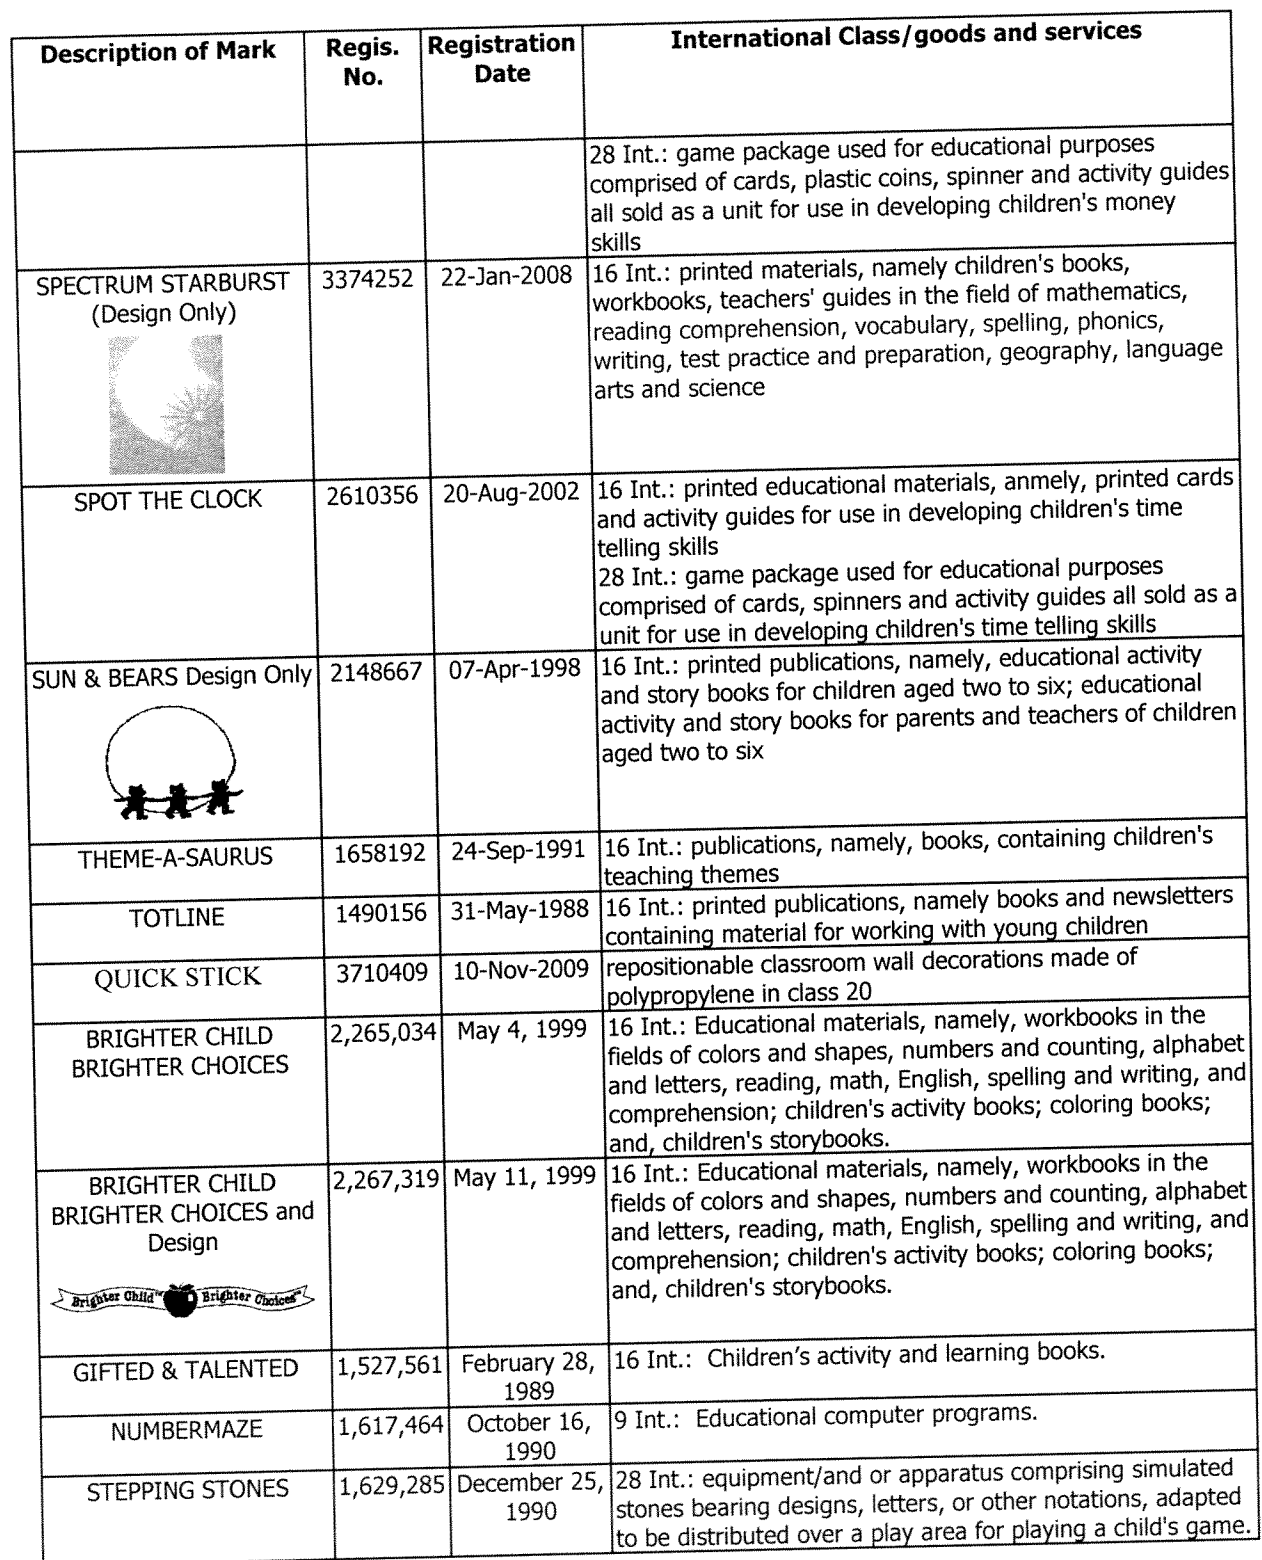 Description of Mark
Regis.
No.
Registration
Date
International Class/goods and services
28 Int.: game package used for educational purposes
comprised of cards, plastic coins, spinner and activity guides
all sold as a unit for use in developing children's money
skills
SPECTRUM STARBURST
(Design Only)
3374252
22-Jan-2008
16 Int.: printed materials, namely children's books,
workbooks, teachers' guides in the field of mathematics,
reading comprehension, vocabulary, spelling, phonics,
writing, test practice and preparation, geography, language
arts and science
SPOT THE CLOCK
2610356
20-Aug-2002
16 Int.: printed educational materials, anmely, printed cards
and activity guides for use in developing children's time
telling skills
28 Int.: game package used for educational purposes
comprised of cards, spinners and activity guides all sold as a
unit for use in developing children's time telling skills
SUN & BEARS Design Only
2148667
07-Apr-1998
16 Int.: printed publications, namely, educational activity
and story books for children aged two to six; educational
activity and story books for parents and teachers of children
aged two to six
THEME-A-SAURUS
1658192
24-Sep-1991
16 Int.: publications, namely, books, containing children's
teaching themes
TOTLINE
1490156
31-May-1988
16 Int.: printed publications, namely books and newsletters
containing material for working with young children
QUICK STICK
3710409
10-Nov-2009
repositionable classroom wall decorations made of
polypropylene in class 20
BRIGHTER CHILD
BRIGHTER CHOICES
2,265,034
May 4, 1999
16 Int.: Educational materials, namely, workbooks in the
fields of colors and shapes, numbers and counting, alphabet
and letters, reading, math, English, spelling and writing, and
comprehension; children's activity books; coloring books;
and, children's storybooks.
BRIGHTER CHILD
BRIGHTER CHOICES and
Design
Brighter Child™ Brighter Choices™
2,267,319
May 11, 1999
16 Int.: Educational materials, namely, workbooks in the
fields of colors and shapes, numbers and counting, alphabet
and letters, reading, math, English, spelling and writing, and
comprehension; children's activity books; coloring books;
and, children's storybooks.
GIFTED & TALENTED
1,527,561
February 28,
1989
16 Int.: Children's activity and learning books.
NUMBERMAZE
1,617,464
October 16,
1990
9 Int.: Educational computer programs.
STEPPING STONES
1,629,285
December 25,
1990
28 Int.: equipment/and or apparatus comprising simulated
stones bearing designs, letters, or other notations, adapted
to be distributed over a play area for playing a child's game.